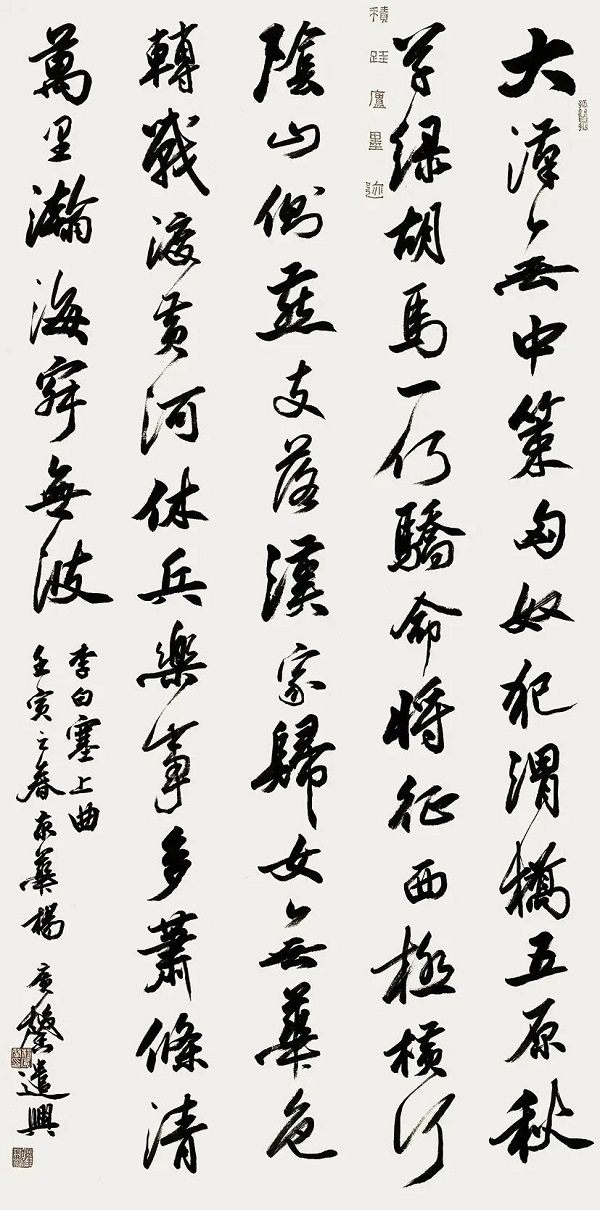 大漢無中策匈奴犯渭橋五原秋
草緑胡馬一何驕命將征西極橫行
陰山側燕支落漢家歸女無華色
轉戰渡黄河休兵樂事多蕭條清
萬里瀚海寂無波
李白塞上曲
壬寅之春京華楊廣馨遣興
積跬廬墨迹